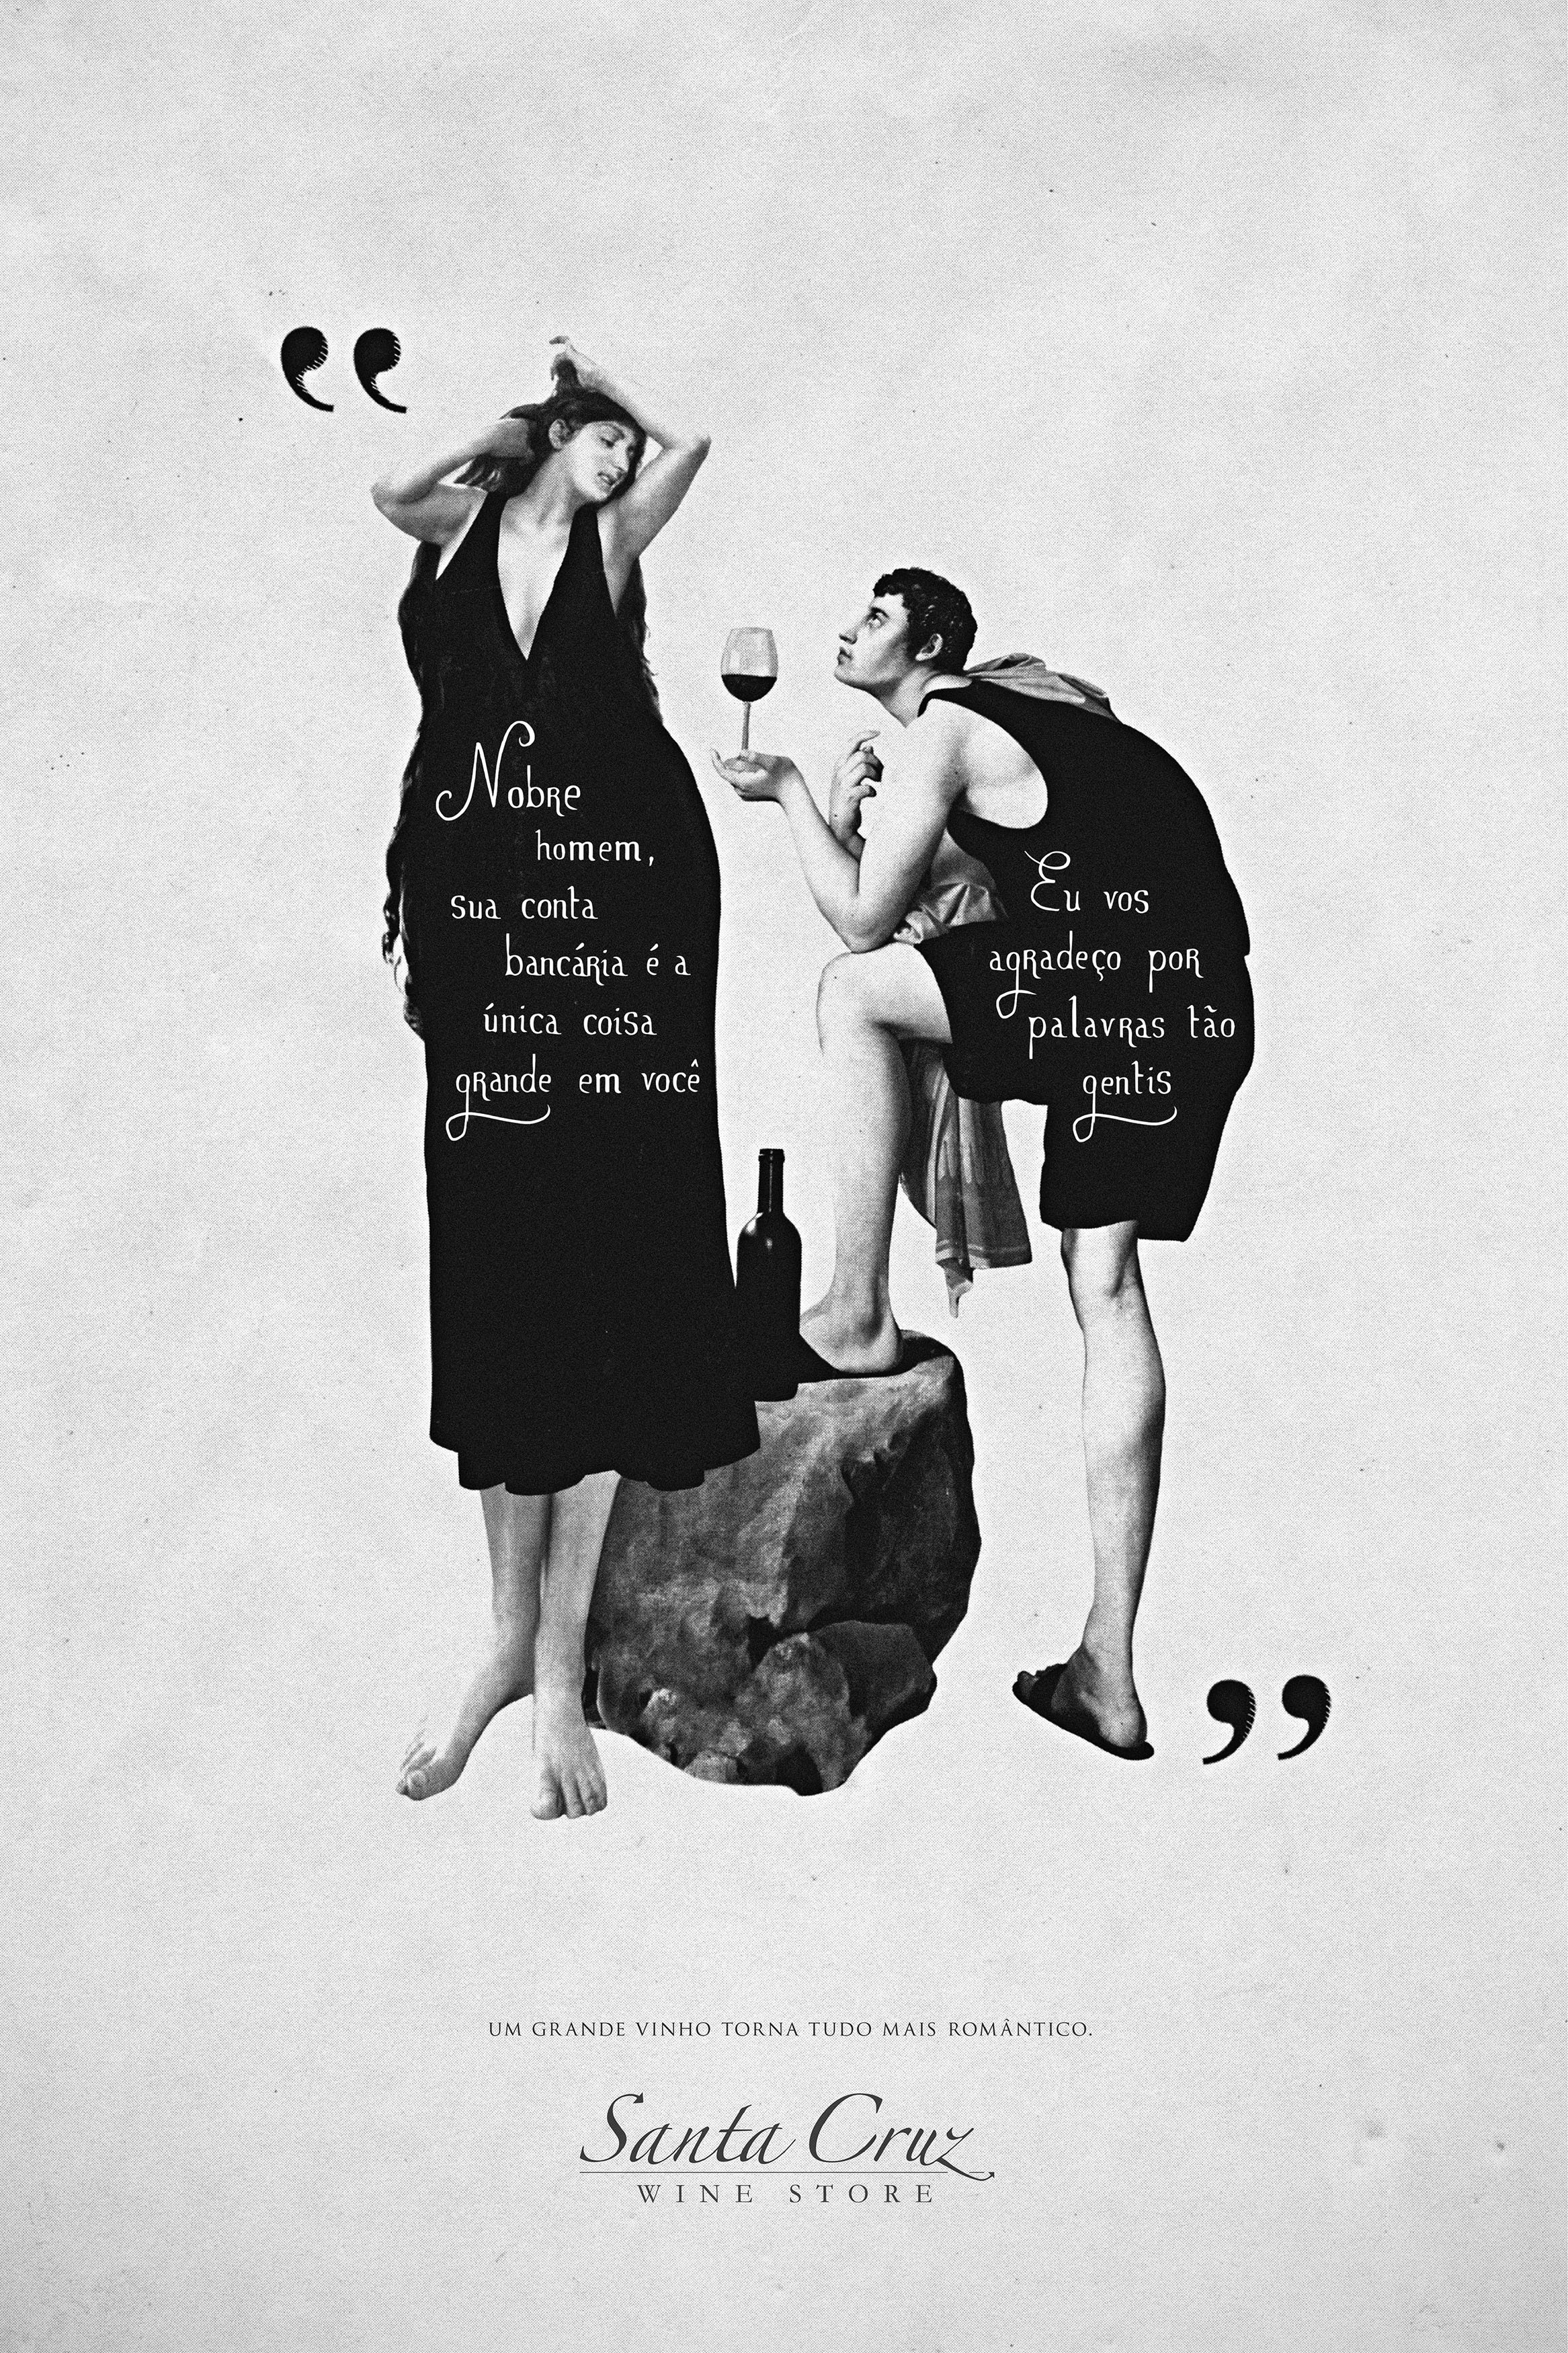 “
Nobre
homem,
sua conta
bancária é a
única coisa
grande em você
Eu vos
agradeço por
palavras tão
gentis
”
UM GRANDE VINHO TORNA TUDO MAIS ROMÂNTICO.
Santa Cruz
WINE STORE